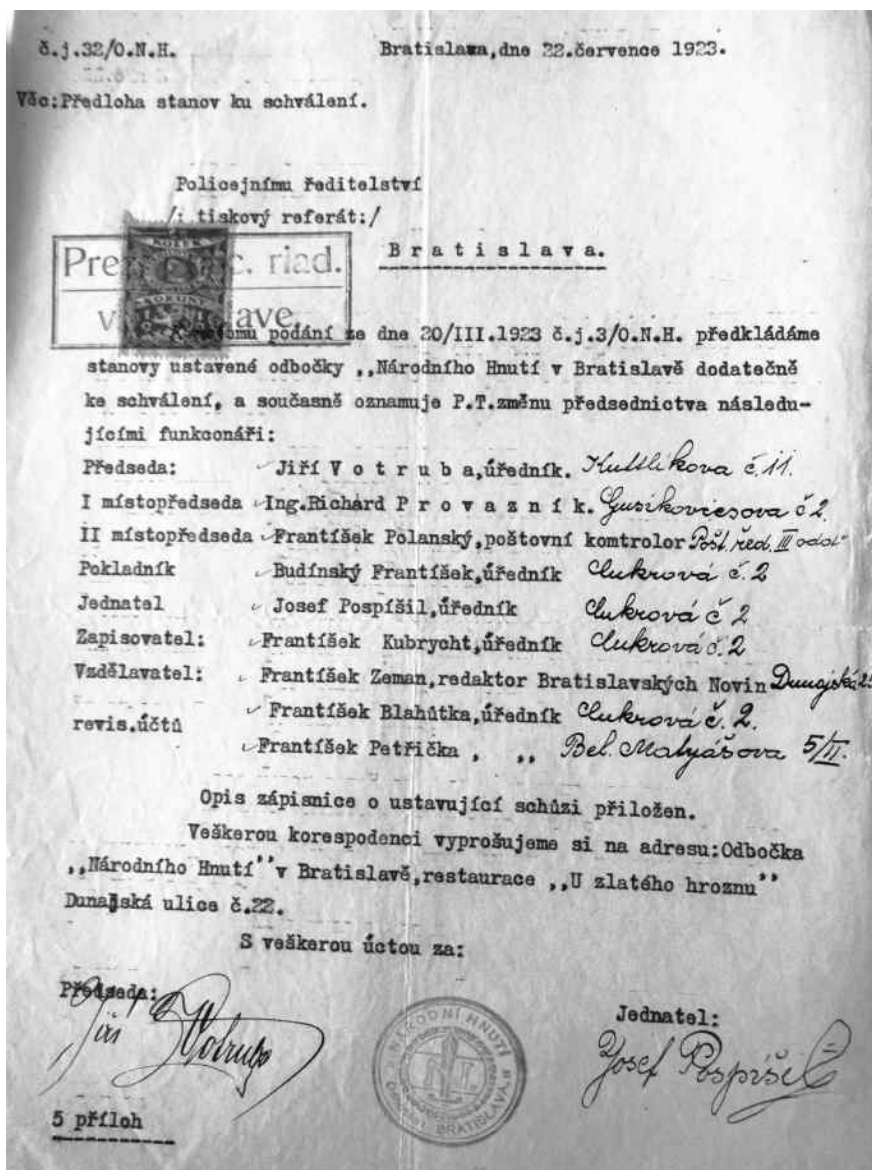 č.j.32/O.N.H. Bratislawa,dne 22.července 1923.
Věc:Předloha stanov ku schválení.
Policejnímu ředitelství
/: tiskový referát:/
Bratislava.
Pre riad.
v ave
podání ze dne 20/III.1923 č.j.3/O.N.H. předkládáme
stanovy ustavené odbočky ,,Národního Hnutí v Bratislavě dodatečně
ke schválení, a současně oznamuje P.T.změnu předsednictva následu-
jícími funkconáři:
Předseda: Jiří Votruba,úředník. Kuttlikova č.11.
I místopředseda Ing.Richárd Provazník. č 2
II místopředseda Frantíšek Polanský,poštovní komtrolor Pošt.řed. III
Pokladník Budínský Frantíšek,úředník Cukrová č. 2
Jednatel Josef Pospíšil,úředník Cukrová č 2
Zapisovatel: Frantíšek Kubrycht,úředník Cukrová č. 2
Vzdělavatel: Frantíšek Zeman,redaktor Bratislavských Novin Dunajská
Frantíšek Blahůtka,úředník Cukrová č. 2.
revis.účtů
Frantíšek Petřička , ,, Bel. Matyášova 5/II.
Opis zápisnice o ustavující schůzi přiložen.
Veškerou korespodenci vyprošujeme si na adresu:Odbočka
,,Národního Hnutí'' v Bratislavě,restaurace ,,U zlatého hroznu''
Dunajská ulice č.22.
S veškerou úctou za:
Předseda:
Jiří Votruba
NÁRODNÍ HNUTÍ
BRATISLAVA
Jednatel:
Josef Pospíšil
5 příloh